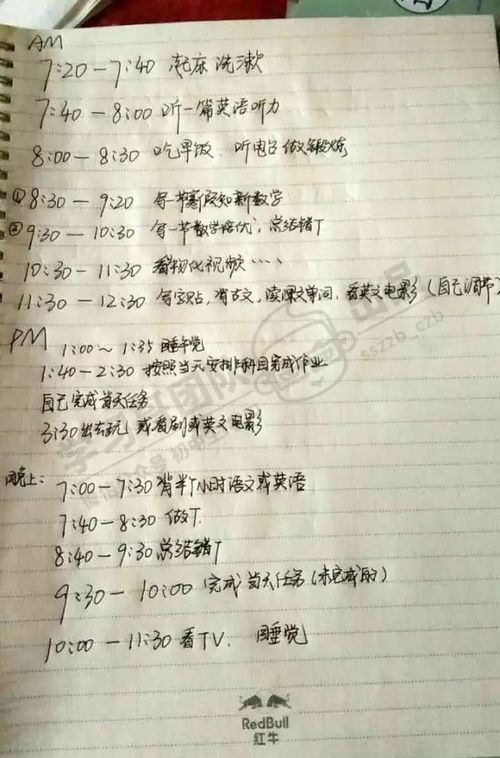 AM
7:20－7:40 起床洗漱
7:40－8:00 听一篇英语听力
8:00－8:30 吃早饭、听电台做锻炼
①8:30－9:20 写一节新知新数学
②9:30－10:30 写一节数学培优，总结错T
10:30－11:30 看物化视频····
11:30－12:30 写字贴，背古文，读课文单词，看英文电影（自己调节）
PM 1:00～1:35 睡午觉
1:40－2:30 按照当天安排科目完成作业
自己完成当天任务
3:30出去玩 或看剧或英文电影
晚上：7:00－7:30 背半个小时语文或英语
7:40－8:30 做T.
8:40－9:30 总结错T
9:30－10:00 完成当天任务（未完成的）
10:00－11:30 看TV. 睡觉
学习 团队 出品
sszzb_czb
RedBull
红牛